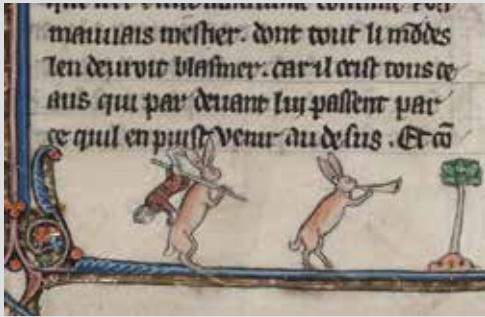 mauuais mestier. dont tout li mōdes
len deuroit blasmer. car il ocist tous ce
aus qui par deuant luy passent par
ce quil en puist venir au desus. Et cō